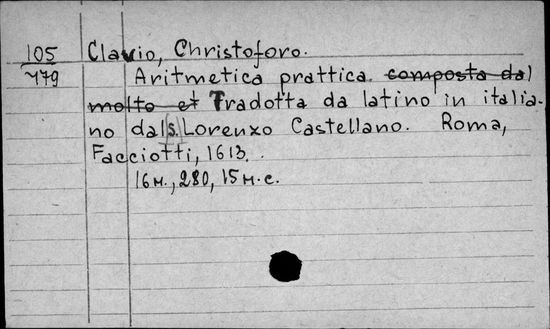 105 Clavio, Christoforo.
779 Aritmetica prattica composta dal
molto et Tradotta da latino in italia-
no dal s. Lorenzo Castellano. Roma,
Facciotti, 1613.
16н., 280, 15 н.с.